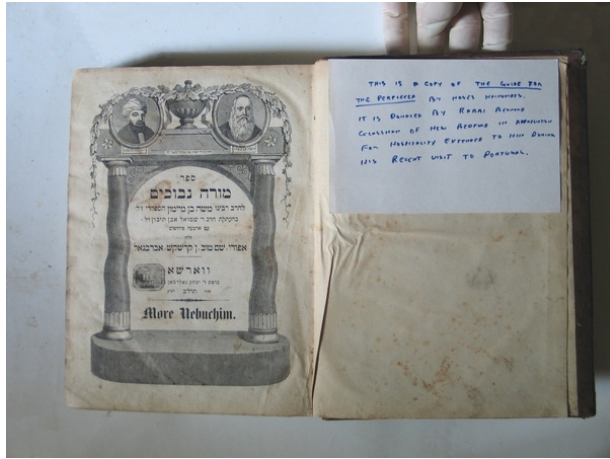 ספר
מורה נבוכים
להרב רבינו משה בן מיימון הספרדי ז״ל
בהעתקת הרב ר׳ שמואל אבן תיבון ז״ל
עם
אפודי, שם טוב, ן׳ קרשקש, אברבנאל
ווארשא
More Nebuchim.
THIS IS A COPY OF THE GUIDE FOR
THE PERPLEXED BY MOSES MAIMONIDES.
IT IS DONATED BY RABBI BERNARD
OF NEW BEDFORD IN APPRECIATION
FOR HOSPITALITY EXTENDED TO HIM DURING
HIS RECENT VISIT TO PORTUGAL.